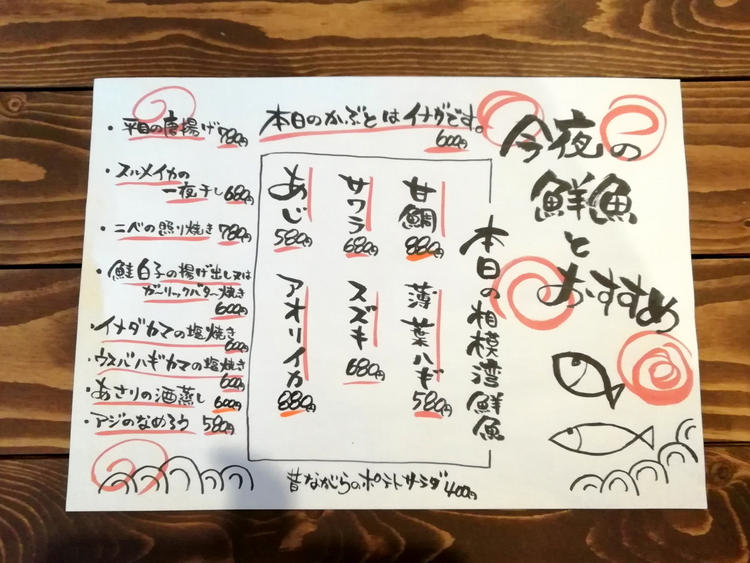 今夜の
鮮魚
と
おすすめ
本日のかぶとはイナダです。
600円
本日の相模湾鮮魚
甘鯛
880円
サワラ
680円
あじ
580円
薄葉ハギ
580円
スズキ
680円
アオリイカ
880円
・平目の唐揚げ 780円
・スルメイカの
一夜干し 680円
・ニベの照り焼き 780円
・鮭白子の揚げ出し又は
ガーリックバター焼き
600円
・イナダカマの塩焼き
600円
・ウスバハギカマの塩焼き
600円
・あさりの酒蒸し 600円
・アジのなめろう 580円
昔ながらのポテトサラダ 400円